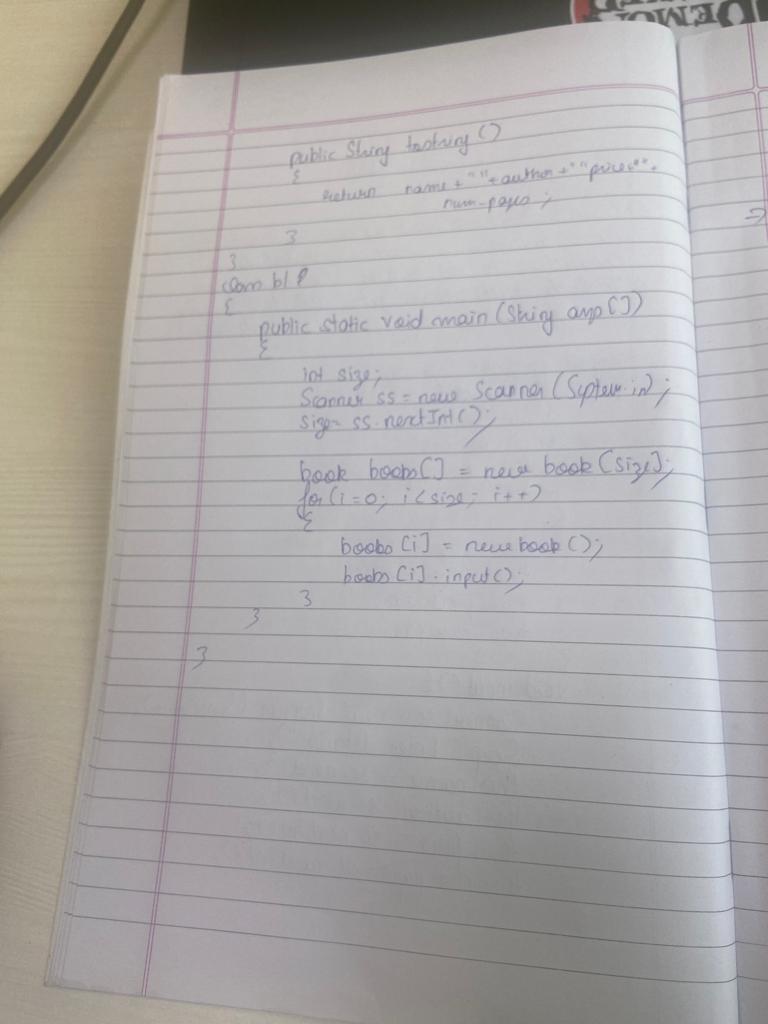 DEMON
public String tostring()
{
return name+" "+author+" "price+" "+
num-pages;
}
}
class blp
{
public static void main(String args[])
{
int size;
Scanner ss = new Scanner(System.in);
size= ss.nextInt();
book books[] = new book[size];
for(i=0; i<size; i++)
{
books[i] = new book();
books[i].input();
}
}
}
⇒